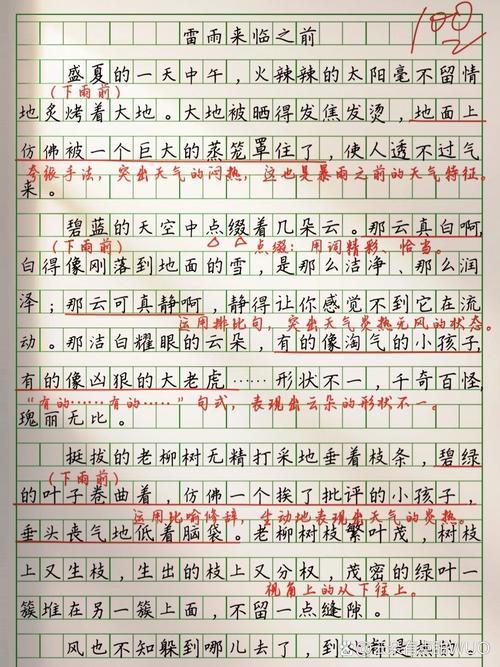 雷雨来临之前
100
盛夏的一天中午，火辣辣的太阳毫不留情
(下雨前)
地炙烤着大地。大地被晒得发焦发烫，地面上
仿佛被一个巨大的蒸笼罩住了，使人透不过气
夸张手法，突出天气的闷热，这也是暴雨之前的天气特征。
来。
碧蓝的天空中点缀着几朵云。那云真白啊，
(下雨前)
点缀：用词精彩、恰当。
白得像刚落到地面的雪，是那么洁净、那么润
泽；那云可真静啊，静得让你感觉不到它在流
运用排比句，突出天气炎热无风的状态。
动。那洁白耀眼的云朵，有的像淘气的小孩子，
有的像凶狠的大老虎……形状不一，千奇百怪，
“有的……有的……”句式，表现出云朵的形状不一。
瑰丽无比。
挺拔的老柳树无精打采地垂着枝条，碧绿
(下雨前)
的叶子卷曲着，仿佛一个挨了批评的小孩子，
运用比喻修辞，生动地表现出天气的炎热。
垂头丧气地低着脑袋。老柳树枝繁叶茂，树枝
上又生枝，生出的枝上又分杈，茂密的绿叶一
视角上的从下往上。
簇堆在另一簇上面，不留一点缝隙。
风也不知躲到哪儿去了，到处都是热的。